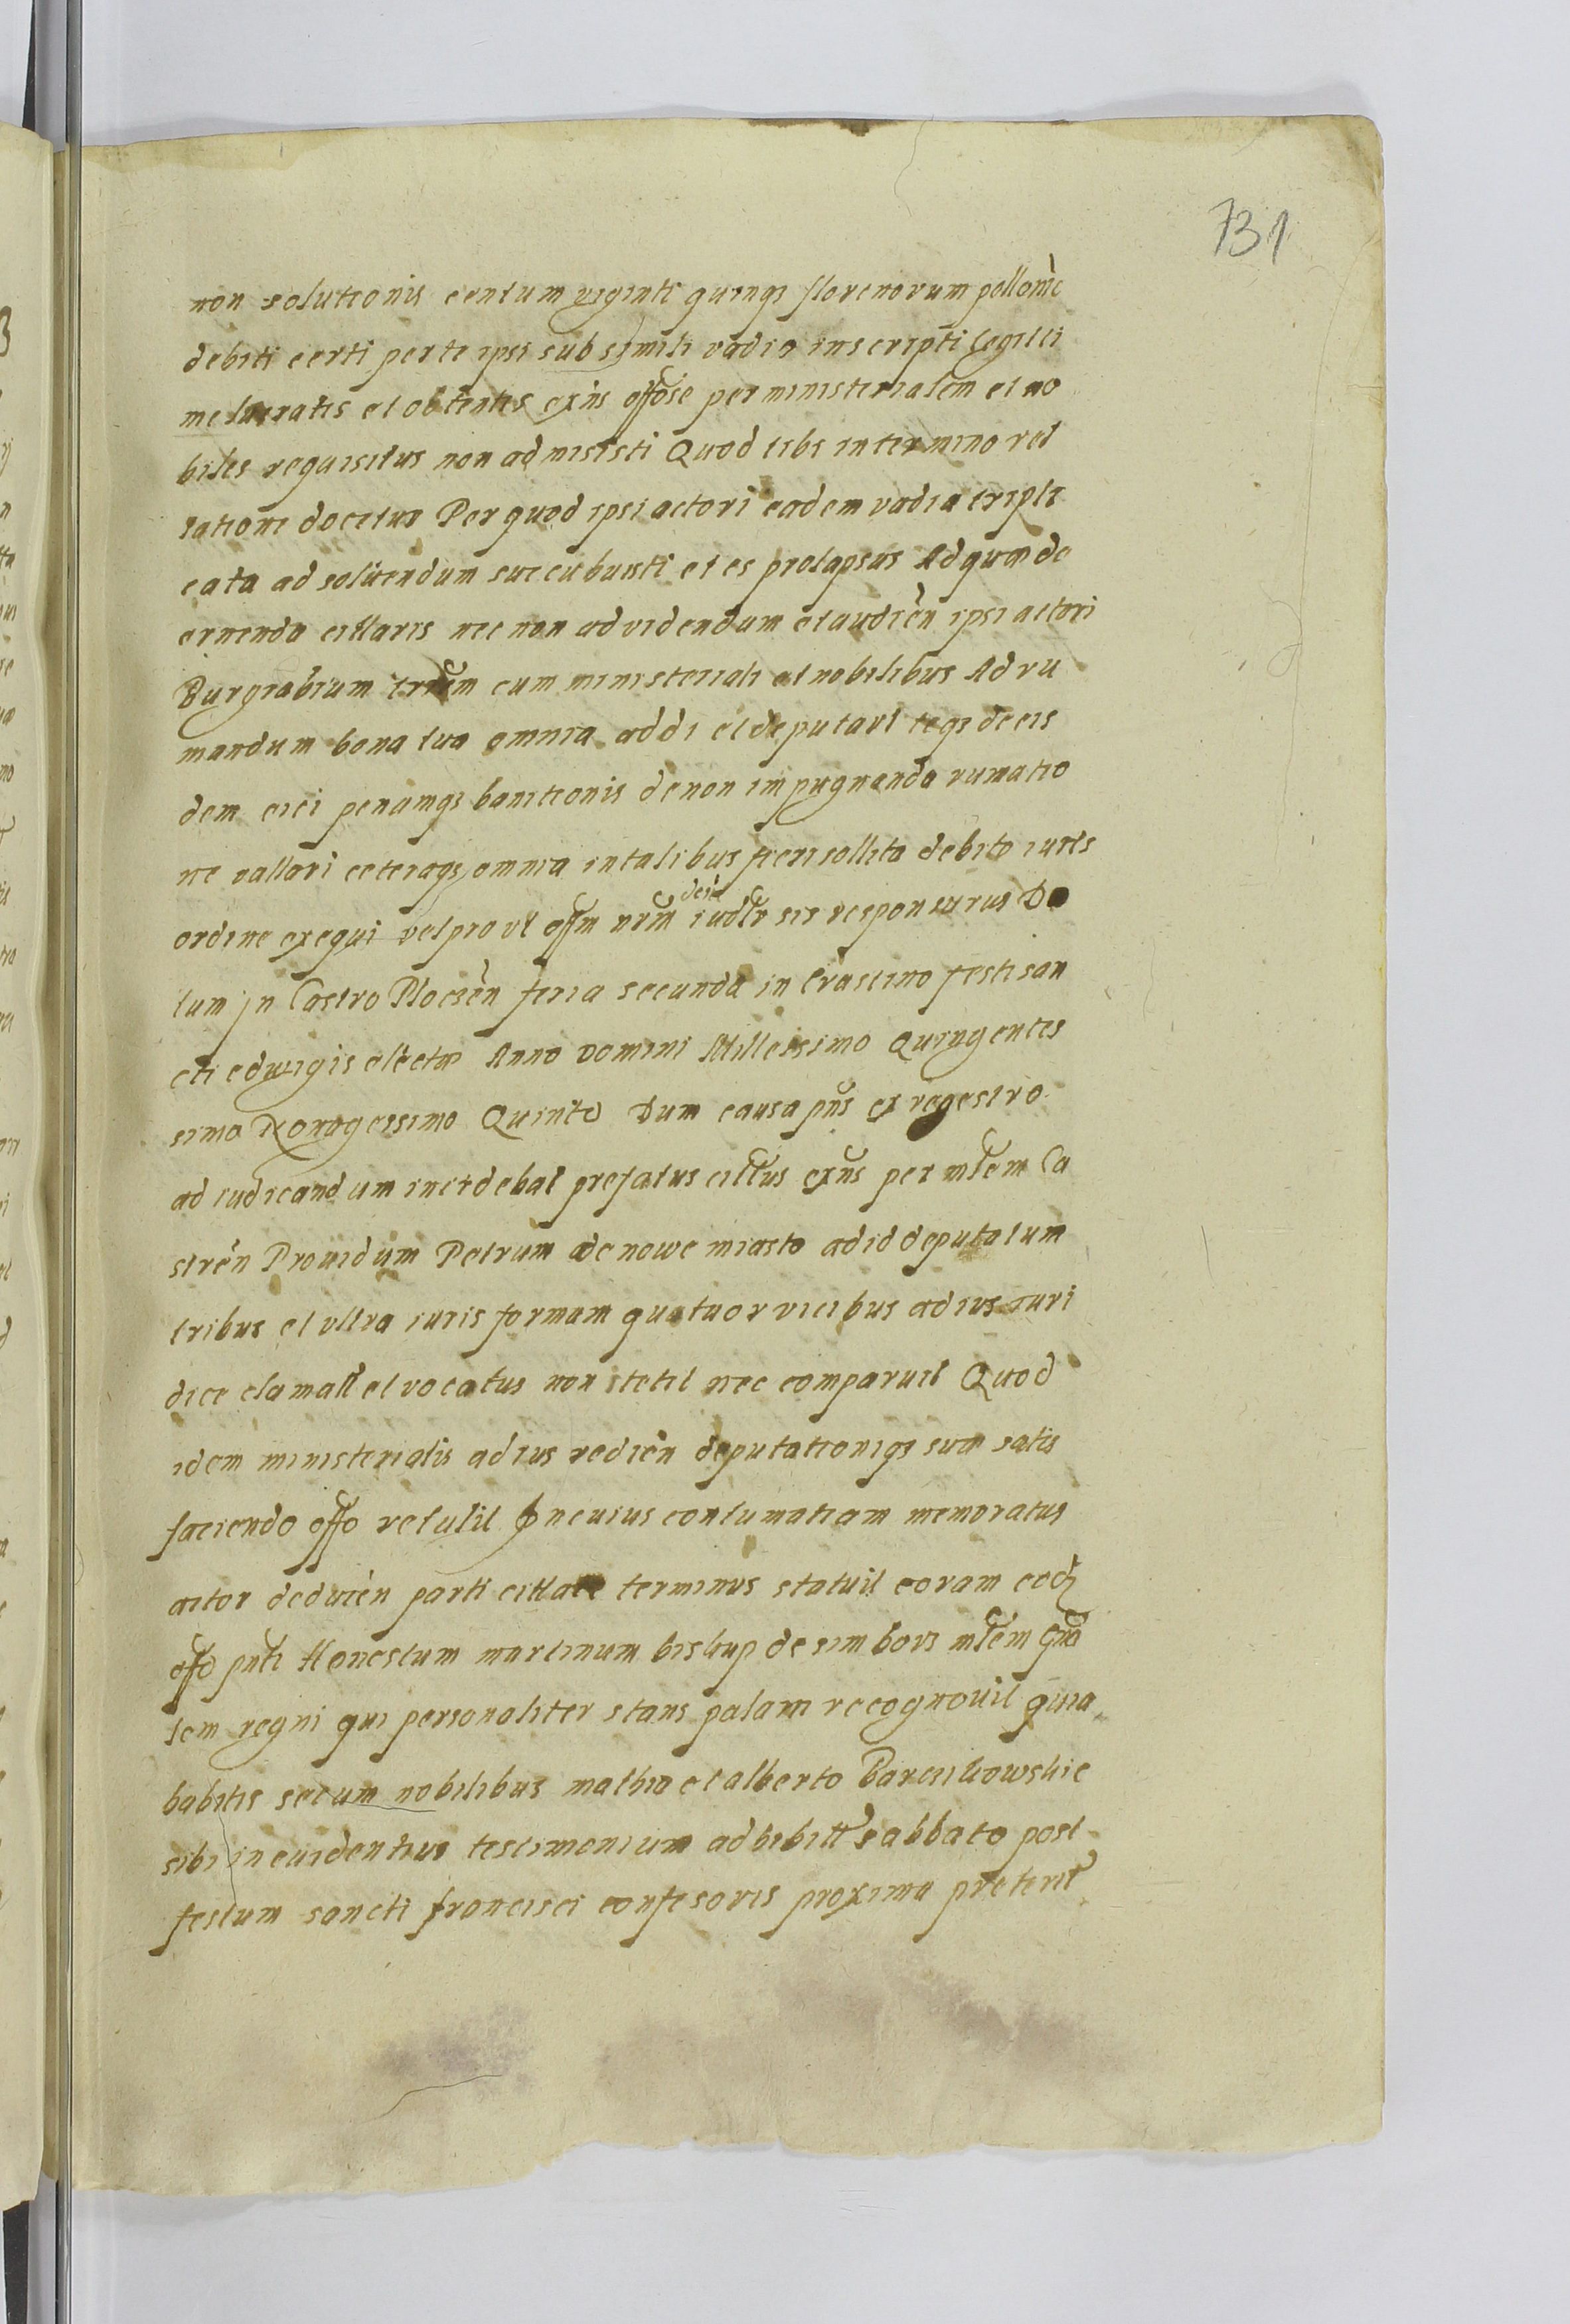 731
non solutionis centum viginti quinqз florenorum pollonic̀
debiti certi per te ipsi sub simili vadio inscripti legitti
me lucratis et obtentis exn̄s offōse per ministerialem et no
biles requisitus non admisisti Quod tibi in termino rel
latione docetur Per quod ipsi actori eadem vadia tripli
cata ad soluendum succubuisti et es prolapsus Ad quæ de
cernenda cittaris nec non ad videndum et audièn ipsi actori
Burgrabium cum ministeriali et nobilibus Ad ru
mandum bona tua omnia addi et deputari teqз de eis
dem eici penamqз banitionis de non impugnanda rumatio
ne vallari ceteraqз omnia in talibus fieri sollita debito iuris
ordine exequi vel pro vt offm nrm̄ sis responsurus Da
tum jn Castro Ploczèn feria secunda in Crastino festi san
cti edwigis electæ Anno Domini Millessimo Quingentes
simo Nonagessimo Quinto Dum causa pn̄s ex regestro
ad iudicandum incidebat prefatus cittūs exn̄s per mt̄em Ca
strèn Prouidum Petrum de nowe miasto ad id deputatum
tribus et vltra iuris formam quatuor vicibus ad ius iuri
dice clamatt et vocatus non stetit nec comparuit Quod
idem ministerialis ad ius redièn deputationiqз suæ satis
faciendo offo retulit Jn cuius contumatiam memoratus
actor deducèn parti cittatæ terminus statuit coram eodз
offo pn̄ti Honestum martinum biskup de simbori mt̄em gn̄a
lem regni qui personaliter stans palam recognouit quia
habitis secum nobilibus mathia et alberto Barcikowskie
sibi in euidentius testimonium adhibitt̄ sabbato post
festum sancti francisci confesoris proxima preterit̄